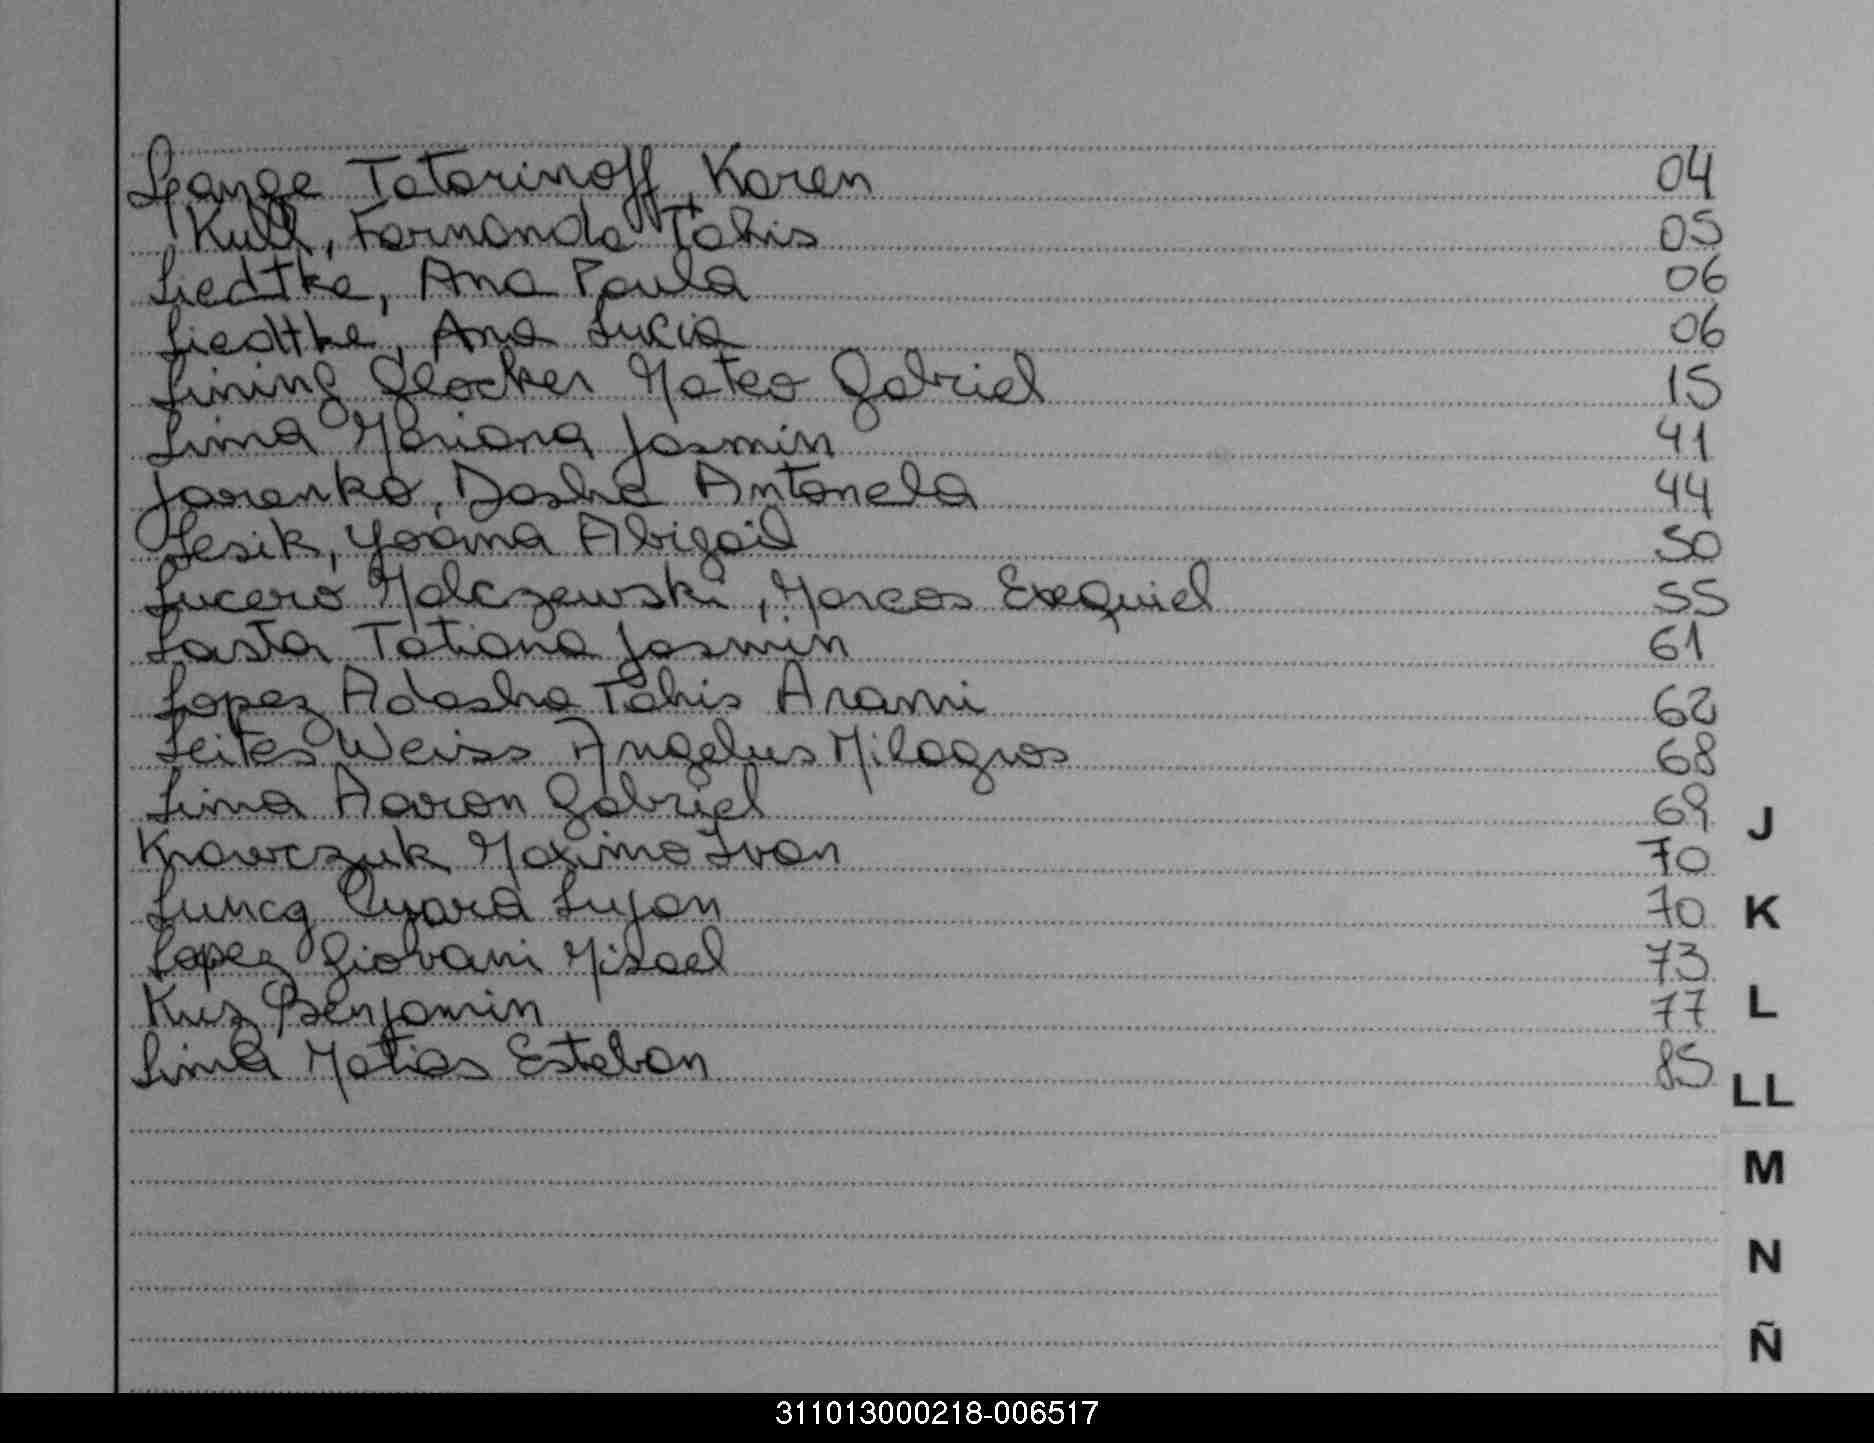 Lange Tatarinoff, Karen 04
Kull, Fernanda Tahis 05
Liedtke, Ana Paula 06
Liedtke, Ana Lucia 06
Lining Glocker Mateo Gabriel 15
Lima Mariana Jasmin 41
Jarenko, Dasha Antonela 44
Lesik, Yoana Abigail 50
Lucero Malczewski, Marcos Exequiel 55
Lasta Tatiana Jasmin 61
Lopez Adasha Tahis Arami 62
Leites Weiss Angelus Milagros 68
Lima Aaron Gabriel 69
J
Krawczuk Maximo Ivan 70
Luncg Cyara Lujan 70
K
Lopez Giovani Misael 73
Kuz Benjamin 77
L
Lima Matias Esteban 85
LL
M
N
Ñ
311013000218-006517